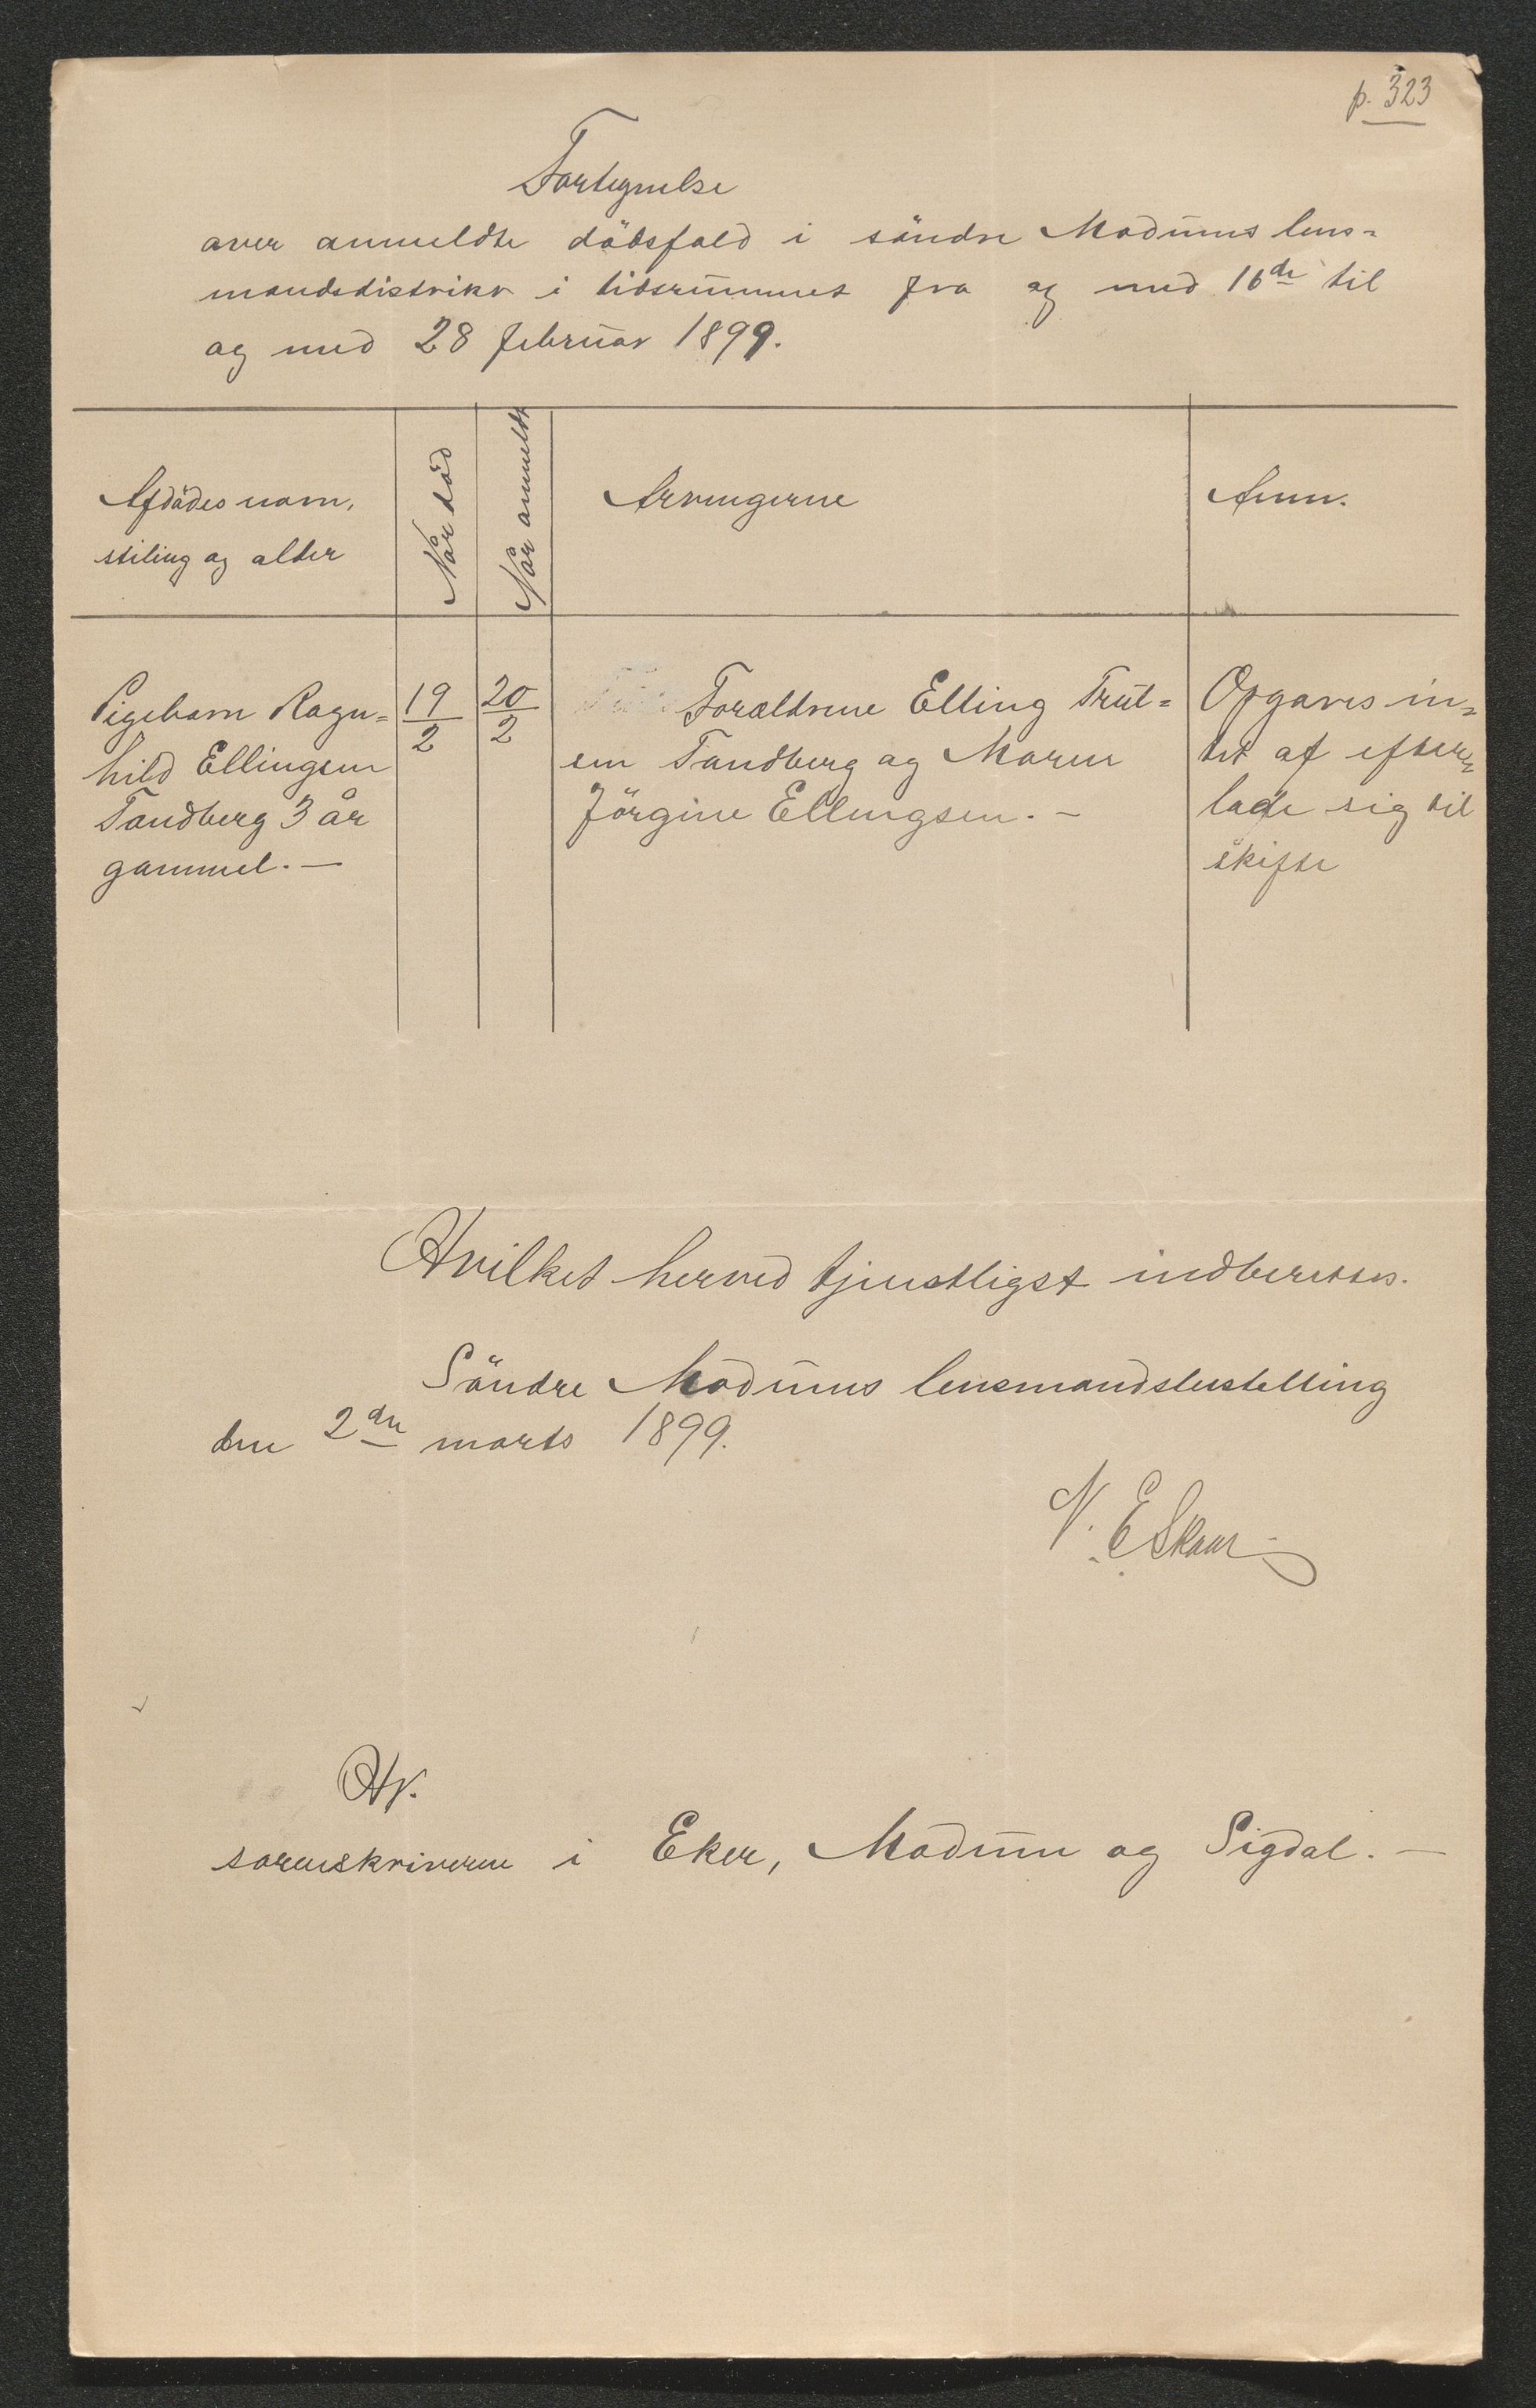 p. 323
Fortegnelse
over anmeldte dödsfald i söndre Modums lens=
mandsdistrikt i tidsrummet fra og med 16de til
og med 28 februar 1899.
Afdödes navn,
stiling og alder
Når död
Når anmeldt
Arvingerne
Anm.
Pigebarn Ragn=
hild Ellingsen
Tandberg 3 år
gammel. —
19/2
20/2
Forældrene Elling Trul=
sen Tandberg og Maren
Jörgine Ellingsen. —
Opgaves in=
tet af efter=
lade sig til
skifte
Hvilket herved tjenstligst indberettes.
Söndre Modums lensmandsbestilling
den 2den marts 1899.
N. E Skaar
Hr.
sorenskriveren i Eker, Modum og Sigdal. —